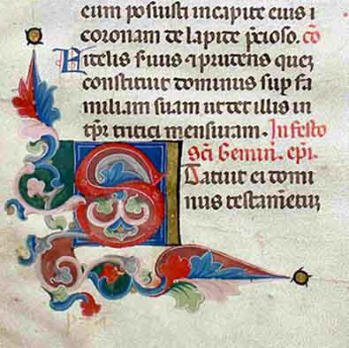 cum posuisti in capite eius i
coronam de lapide p̄cioso. cō
Fidelis s̄uus ⁊ prudens quez
constituit dominus sup fa
miliam suam ut det illis in
tp̄r tritici mensuram. In festo
sc̄i Gemin̄. ep̄i.
Statuit ei domi
nus testam̄etuz